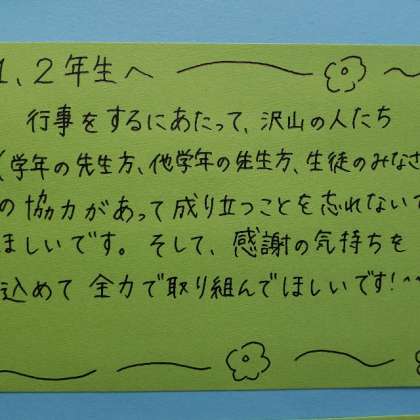 1、2年生へ
行事をするにあたって、沢山の人たち
(学年の先生方、他学年の先生方、生徒のみなさ
の協力があって成り立つことを忘れないで
ほしいです。そして、感謝の気持ちを
込めて全力で取り組んでほしいです!^^